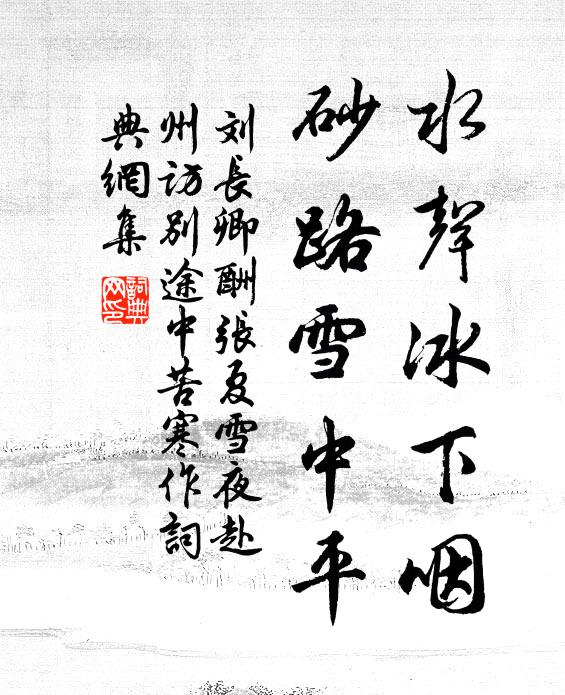 水聲冰下咽
砂路雪中平
刘長卿酬張夏雪夜赴
州訪别途中苦寒作詞
典網集
詞典
网印